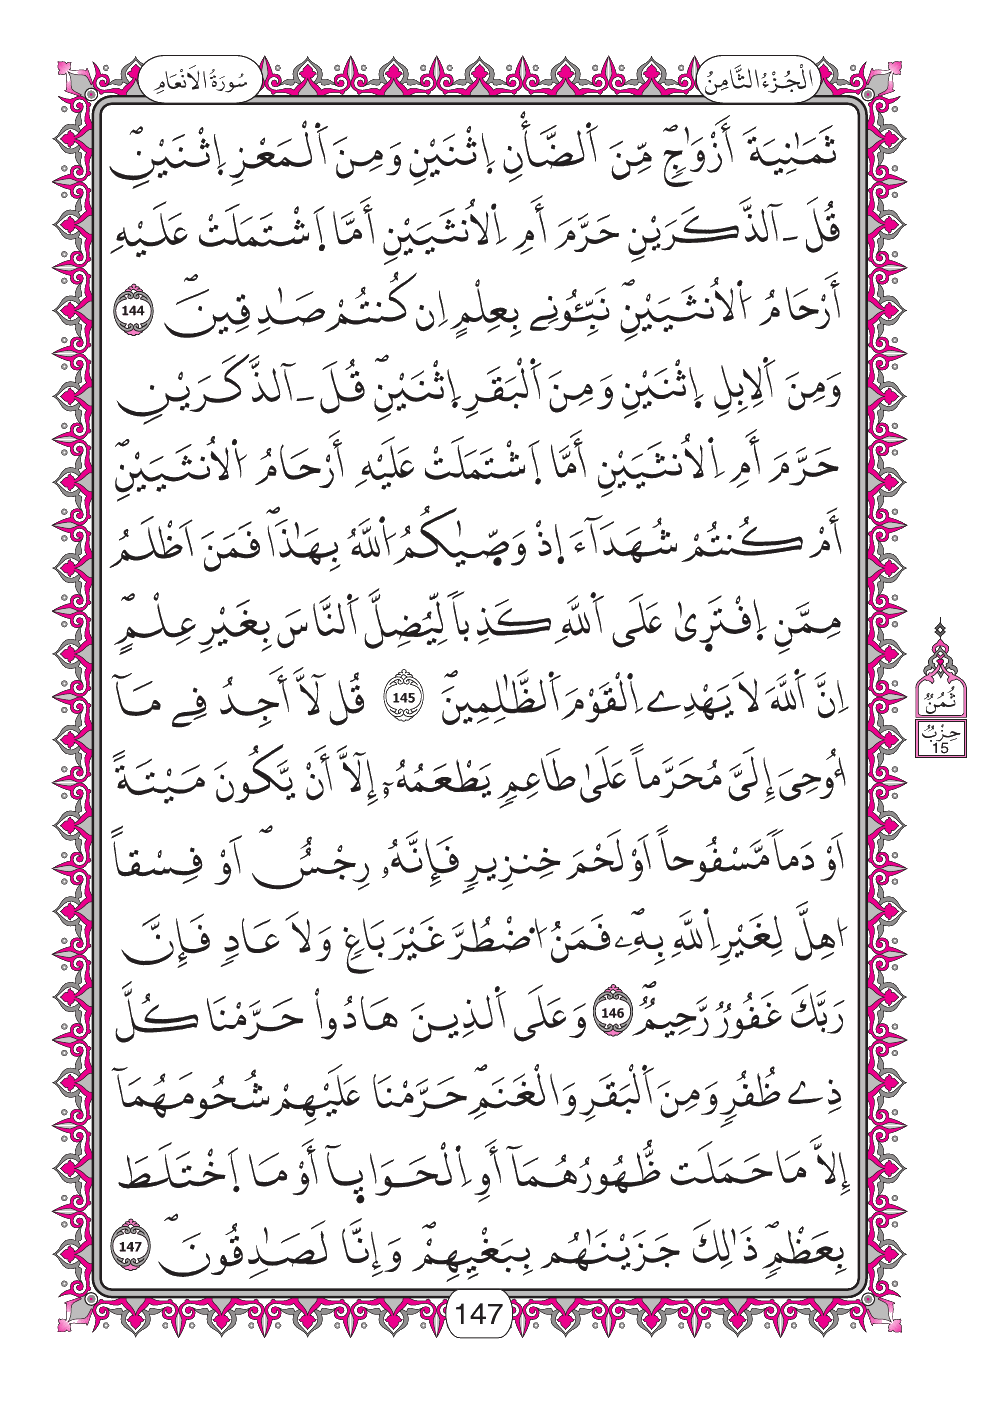 الْجُزْءُ الثَّامِنُ
سُورَةُ الاَنْعَامِ
ثَمَٰنِيَةَ أَزْوَٰجٖ مِّنَ اَ۬لضَّأْنِ اِ۪ثْنَيْنِ وَمِنَ اَ۬لْمَعْزِ اِ۪ثْنَيْنِۖ
قُلَ ـ آلذَّكَرَيْنِ حَرَّمَ أَمِ اِ۬لُانثَيَيْنِ أَمَّا اَ۪شْتَمَلَتْ عَلَيْهِ
أَرْحَامُ اُ۬لُانثَيَيْنِۖ نَبِّـُٔونِے بِعِلْمٍ اِن كُنتُمْ صَٰدِقِينَۖ 144
وَمِنَ اَ۬لِابِلِ اِ۪ثْنَيْنِ وَمِنَ اَ۬لْبَقَرِ اِ۪ثْنَيْنِۖ قُلَ ـ آلذَّكَرَيْنِ
حَرَّمَ أَمِ اِ۬لُانثَيَيْنِ أَمَّا اَ۪شْتَمَلَتْ عَلَيْهِ أَرْحَامُ اُ۬لُانثَيَيْنِۖ
أَمْ كُنتُمْ شُهَدَآءَ اِذْ وَصّ۪يٰكُمُ اُ۬للَّهُ بِهَٰذَاۖ فَمَنَ اَظْلَمُ
مِمَّنِ اِ۪فْتَر۪يٰ عَلَي اَ۬للَّهِ كَذِباٗ لِّيُضِلَّ اَ۬لنَّاسَ بِغَيْرِ عِلْمٍۖ
اِنَّ اَ۬للَّهَ لَا يَهْدِے اِ۬لْقَوْمَ اَ۬لظَّٰلِمِينَۖ 145 قُل لَّآ أَجِدُ فِے مَآ
أُوحِيَ إِلَيَّ مُحَرَّماً عَلَيٰ طَاعِمٖ يَطْعَمُهُۥٓ إِلَّآ أَنْ يَّكُونَ مَيْتَةً
اَوْ دَماٗ مَّسْفُوحاً اَوْ لَحْمَ خِنزِيرٖ فَإِنَّهُۥ رِجْسٌۖ اَوْ فِسْقاً
ا۟هِلَّ لِغَيْرِ اِ۬للَّهِ بِهِۦۖ فَمَنُ اُ۟ضْطُرَّ غَيْرَ بَاغٖ وَلَا عَادٖ فَإِنَّ
رَبَّكَ غَفُورٞ رَّحِيمٞۖ 146 وَعَلَي اَ۬لذِينَ هَادُواْ حَرَّمْنَا كُلَّ
ذِے ظُفُرٖ وَمِنَ اَ۬لْبَقَرِ وَالْغَنَمِۖ حَرَّمْنَا عَلَيْهِمْ شُحُومَهُمَآ
إِلَّا مَا حَمَلَت ظُّهُورُهُمَآ أَوِ اِ۬لْحَوَايَآ أَوْ مَا اَ۪خْتَلَطَ
بِعَظْمٖۖ ذَٰلِكَ جَزَيْنَٰهُم بِبَغْيِهِمْۖ وَإِنَّا لَصَٰدِقُونَۖ 147
ثُمُنٌ
حِزْبٌ
15
147